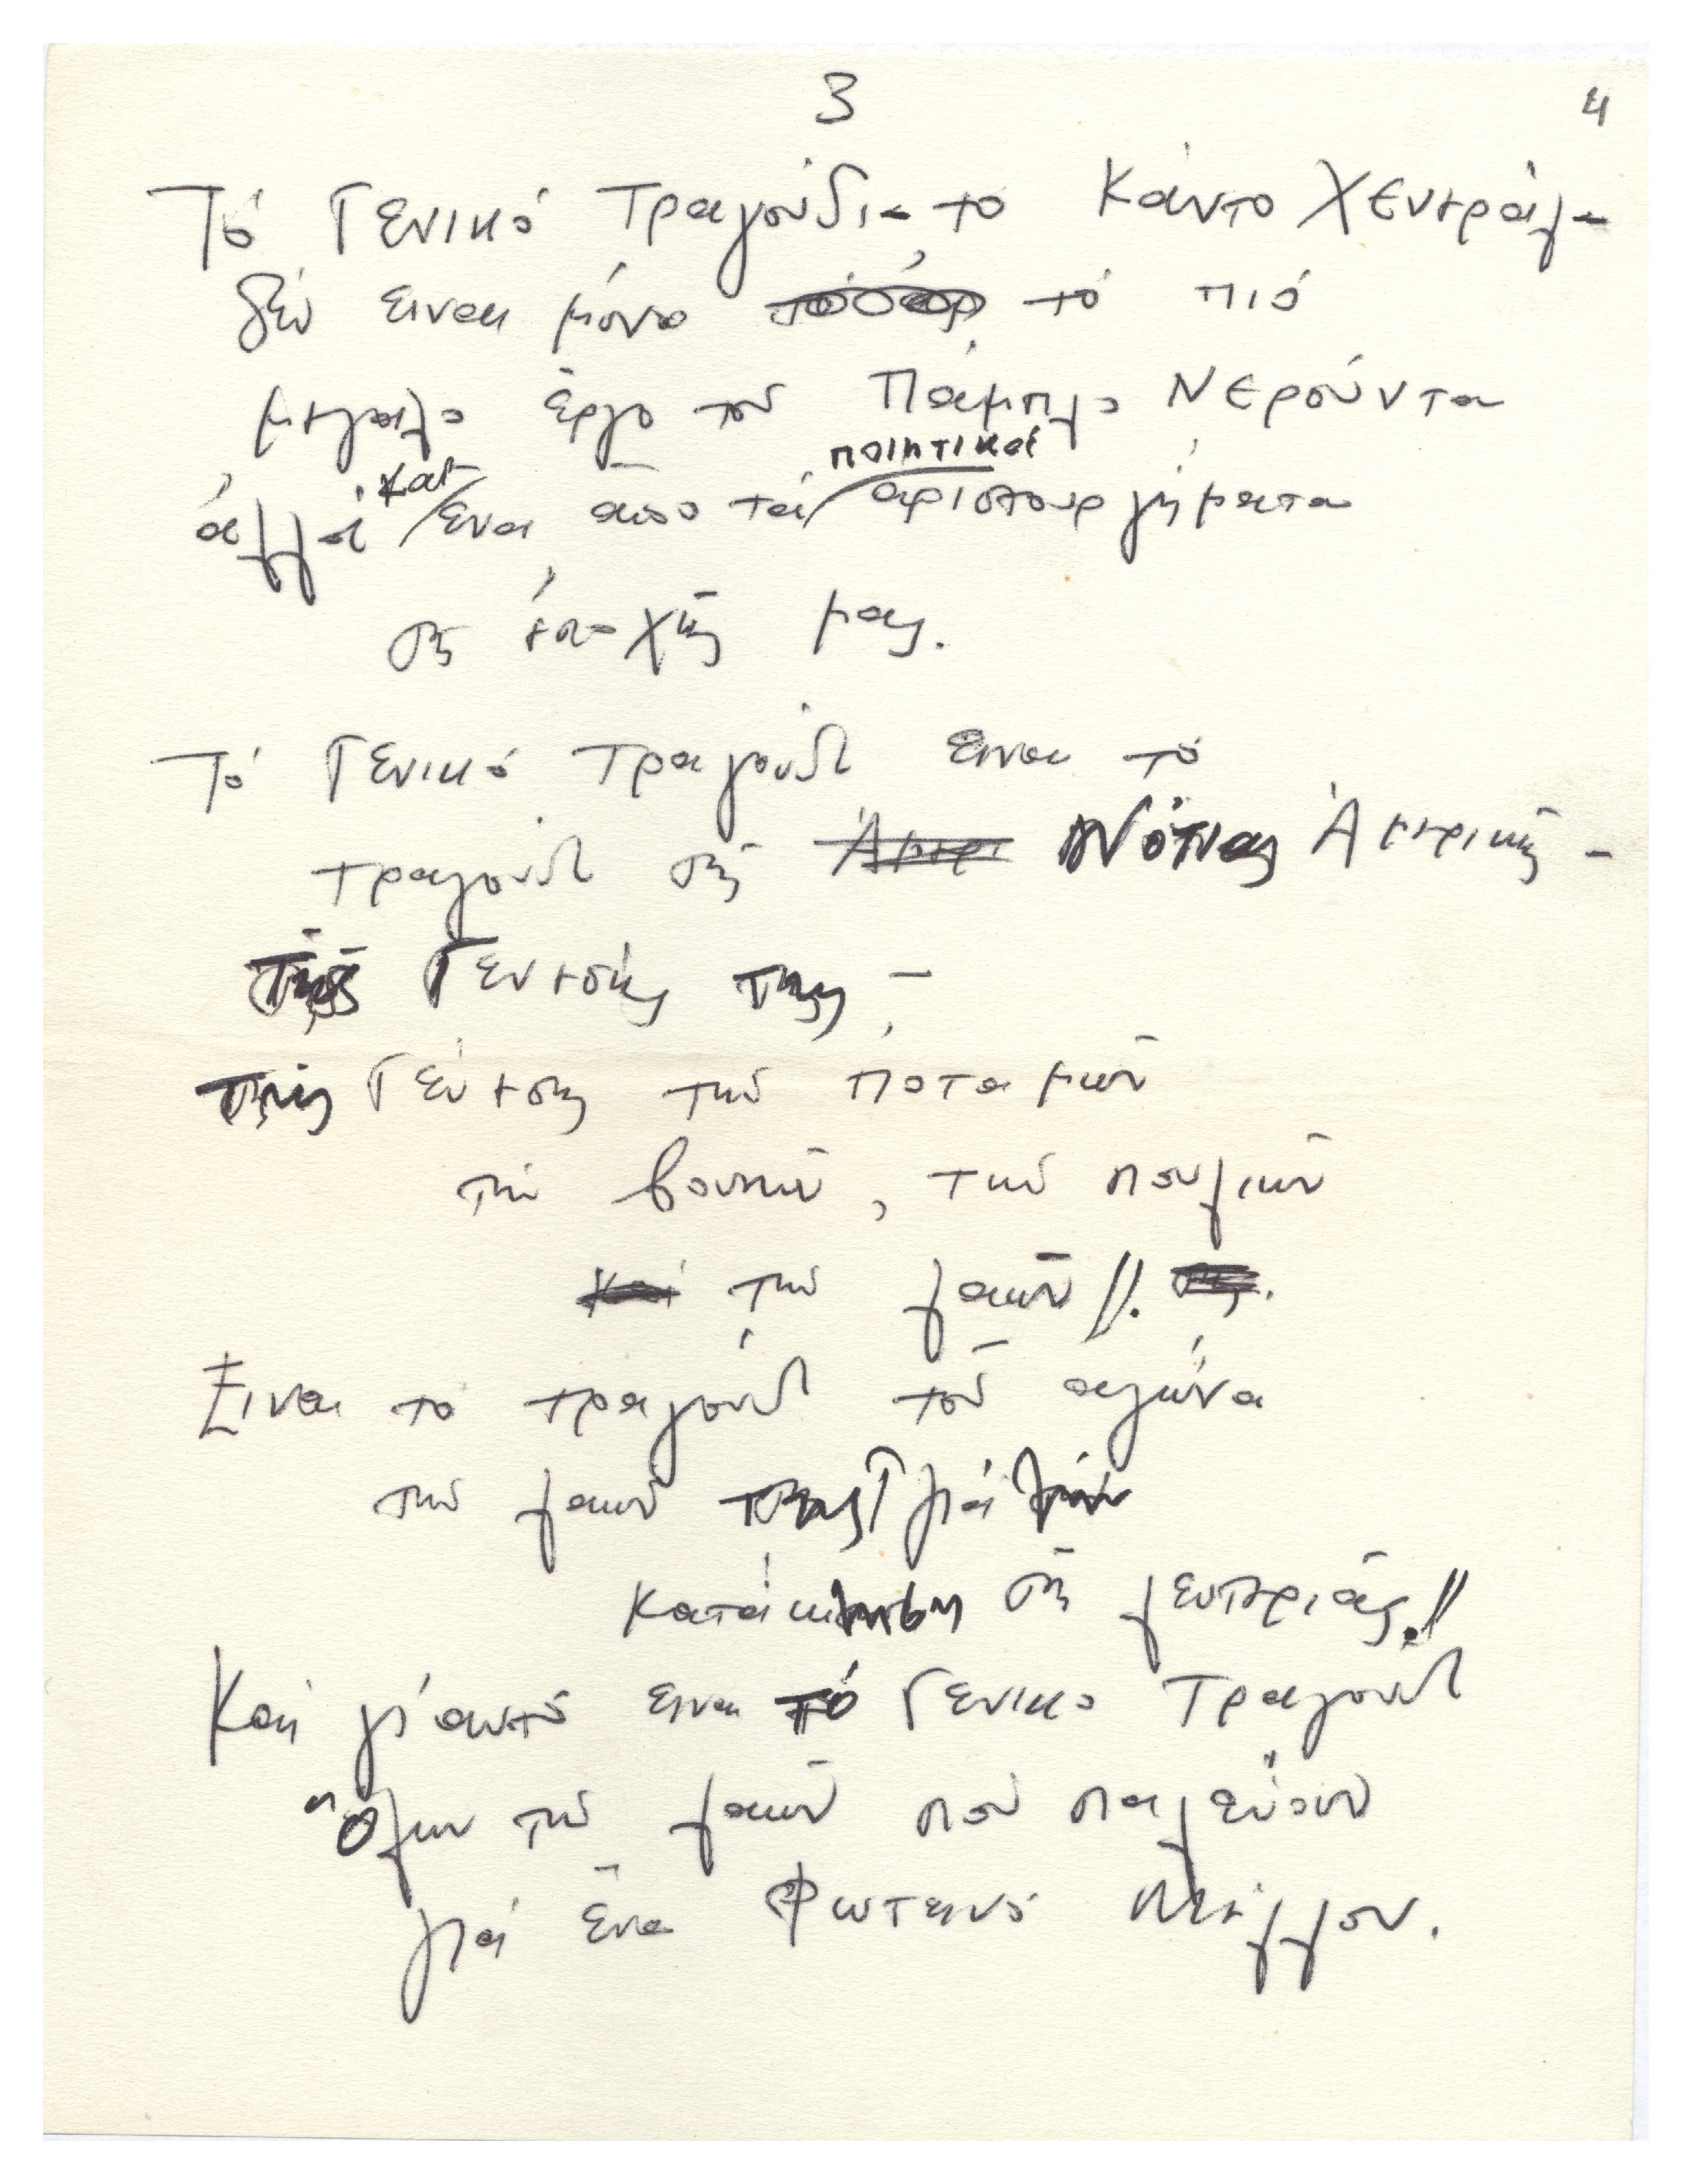 3
4
Τό Γενικό Τραγούδι - το Κάντο Χενεράλ -
δέν ειναι μόνο τό πιό
μεγαλο έργο τοῦ Πάμπλο Νερούντα
ποιητικά
άλλά και ενα απο τά αριστουργήματα
τῆς έποχῆς μας.
Τό Γενικό Τραγούδι ειναι τό
τραγούδι τῆς Αμερι Νότιας Ἀμερικῆς -
τῆς Γενεσής της -
τῆς Γένεσης τῶν Ποταμῶν
τῶν βουνῶν, τῶν πουλιῶν
καί τῶν λαῶν //.
Ειναι το τραγούδι τοῦ αγώνα
τῶν λαῶν της γιά τήν
κατάκτηση τῆς λευτεριᾶς. //
Καί γι' αυτό ειναι τό Γενικο Τραγούδι
Ὅλων τῶν λαῶν πού παλεύουν
γιά ἕνα Φωτεινό Μέλλον.